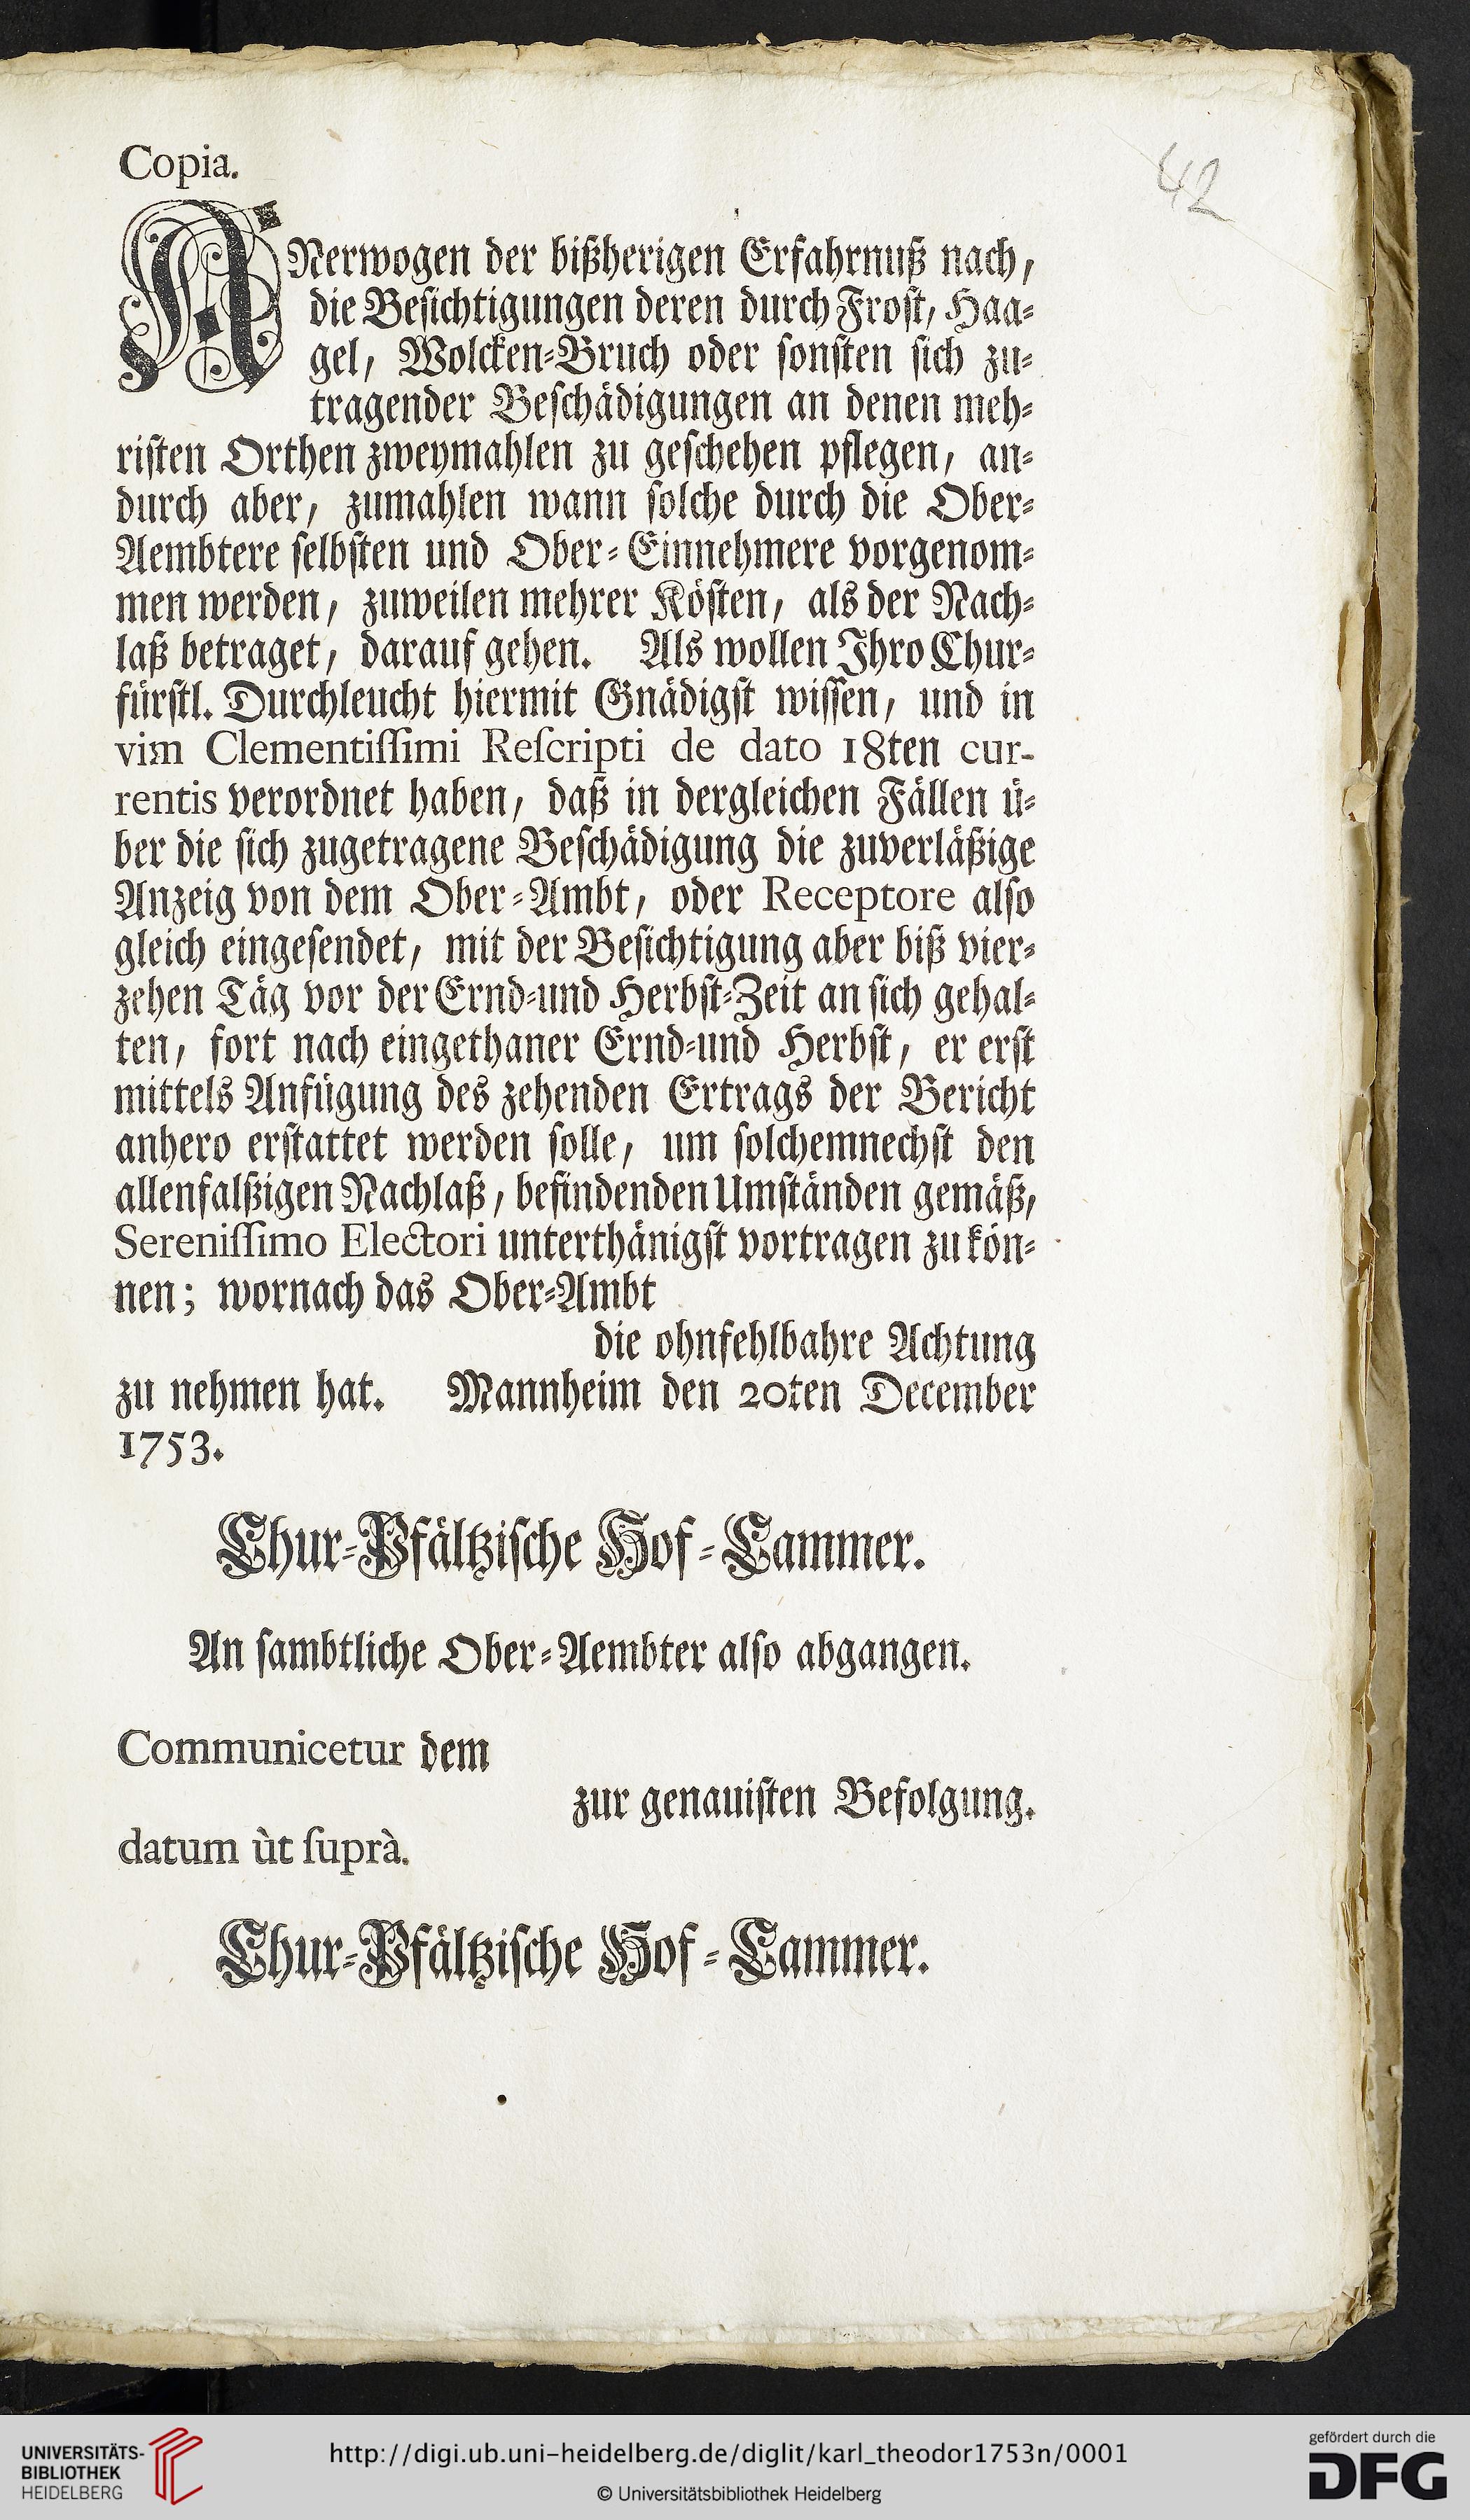 Copia.
42
ANerwogen der bißherigen Erfahrnuß nach,
die Besichtigungen deren durch Frost, Haa-
gel, Wolcken-Bruch oder sonsten sich zu-
tragender Beschädigungen an denen meh-
risten Orthen zweymahlen zu geschehen pflegen, an-
durch aber, zumahlen wann solche durch die Ober-
Aembtere selbsten und Ober-Einnehmere vorgenom-
men werden, zuweilen mehrer Kösten, als der Nach-
laß betraget, darauf gehen. Als wollen Ihro Chur-
fürstl. Durchleucht hiermit Gnädigst wissen, und in
vim Clementiſſimi Reſcripti de dato 18ten cur-
rentis verordnet haben, daß in dergleichen Fällen ü-
ber die sich zugetragene Beschädigung die zuverläßige
Anzeig von dem Ober-Ambt, oder Receptore also
gleich eingesendet, mit der Besichtigung aber biß vier-
zehen Täg vor der Ernd-und Herbst-Zeit an sich gehal-
ten, fort nach eingethaner Ernd-und Herbst, er erst
mittels Anfügung des zehenden Ertrags der Bericht
anhero erstattet werden solle, um solchemnechst den
allenfalßigen Nachlaß, befindenden Umständen gemäß,
Sereniſſimo Electori unterthänigst vortragen zu kön-
nen; wornach das Ober-Ambt
die ohnfehlbahre Achtung
zu nehmen hat. Mannheim den 20ten December
1753.
Chur-Pfältzische Hof-Cammer.
An sambtliche Ober-Aembter also abgangen.
Communicetur dem
zur genauisten Befolgung.
datum ùt ſuprà.
Chur-Pfältzische Hof-Cammer.
UNIVERSITÄTS-
BIBLIOTHEK
HEIDELBERG
http://digi.ub.uni-heidelberg.de/diglit/karl_theodor1753n/0001
© Universitätsbibliothek Heidelberg
gefördert durch die
DFG